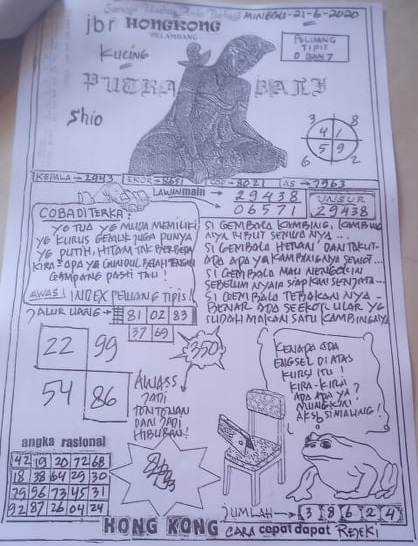 MINGGU-21-6-2020
jbr HONGKONG
PALEMBANG
KUCING
PELUANG
TIPIS
0 DAN 7
PUTRA BALI
Shio
3 8
4 1
5 9
6 2
KEPALA → 2943
8021
AS → 7963
LAWAN main → 29438
06571
UNSUR
29438
COBA DITERKA:
YG TUA YG MUDA MEMILIKI
YG KURUS GEMUK JUGA PUNYA
YG PUTIH, HITAM TAK BERBEDA
KIRA² APA YG GUNDUL BELAH TENGAH
GAMPANG PASTI TAU!
SI GEMBALA KAMBING, KAMBING
NYA RIBUT SEMUA NYA...
SI GEMBALA HERAN DAN TAKUT
ADA APA YA KAMBINGNYA SEWOT...
SI GEMBALA MAU NENGOKIN
SEBELUM NYAIA SIAPKAN SENJATA...
SI GEMBALA TEBAKAN NYA
BENAR ADA SEEKOT ULAR YG
SUDAH MAKAN SATU KAMBINGNYA
AWAS! INDEX PELUANG TIPIS!
JALUR UANG → 81 02 83
37 69
22 99
54 86
350
AWASS
JADI
TONTONAN
DAN JADI
HIBURAN!
KENAPA ADA
ENGSEL DI ATAS
KURSI ITU!
KIRA-KIRA
ADA APA YA?
MUNGKIN
AKSI SIMALING!
angka rasional
42 19 20 72 68
18 38 64 29 30
79 96 73 45 31
92 87 26 04 24
JUMLAH → 3 8 6 2 4
HONG KONG CARA cepat dapat REJEKI